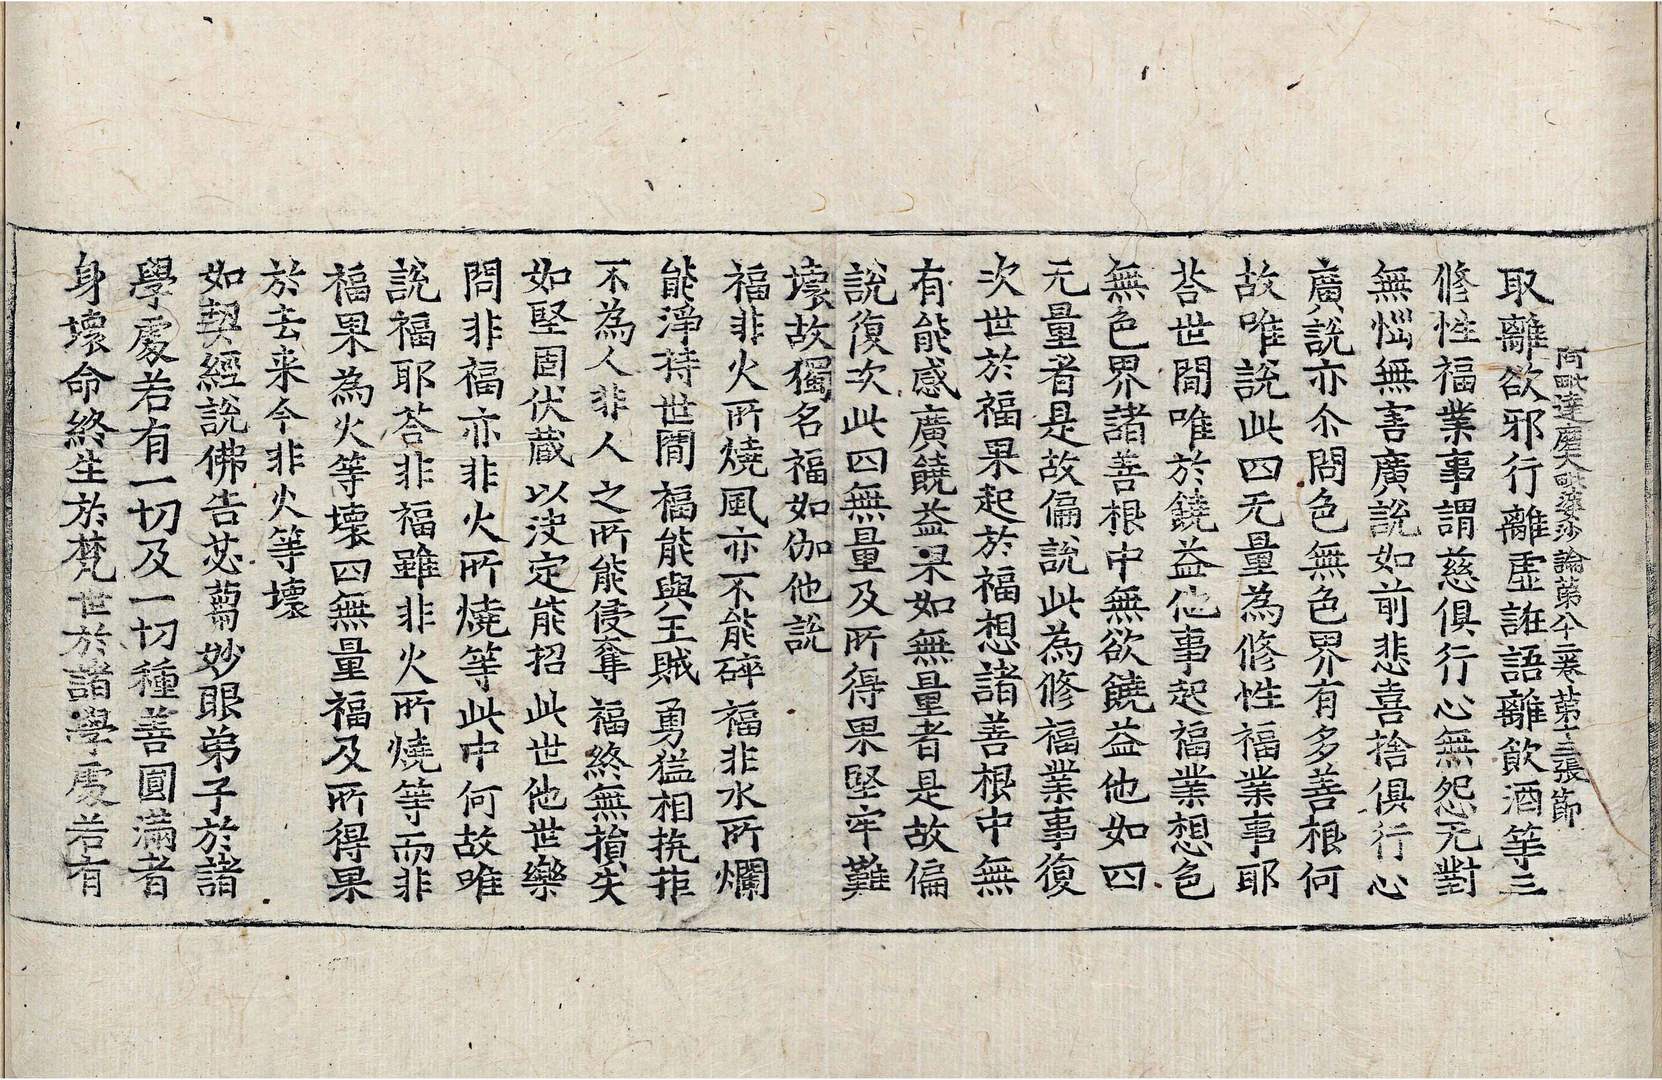 阿毗達磨大毗婆沙論第八十二卷第十三張 節
取離欲邪行離虛誑語離飲酒等三
修性福業事謂慈俱行心無怨无對
無惱無害廣說如前悲喜捨俱行心
廣說亦尒問色無色界有多善根何
故唯說此四无量為修性福業事耶
荅世間唯於饒益他事起福業想色
無色界諸善根中無欲饒益他如四
无量者是故偏說此為修福業事復
次世於福果起於福想諸善根中無
有能感廣饒益果如無量者是故偏
說復次此四無量及所得果堅牢難
壞故獨名福如伽他說
福非火所燒風亦不能碎福非水所爛
能淨持世間福能與王賊勇猛相抗拒
不為人非人之所能侵奪福終無損失
如堅固伏藏以決定能招此世他世樂
問非福亦非火所燒等此中何故唯
說福耶荅非福雖非火所燒等而非
福果為火等壞四無量福及所得果
於去来今非火等壞
如契經說佛告苾蒭妙眼弟子於諸
學處若有一切及一切種善圓滿者
身壞命終生於梵世於諸學處若有